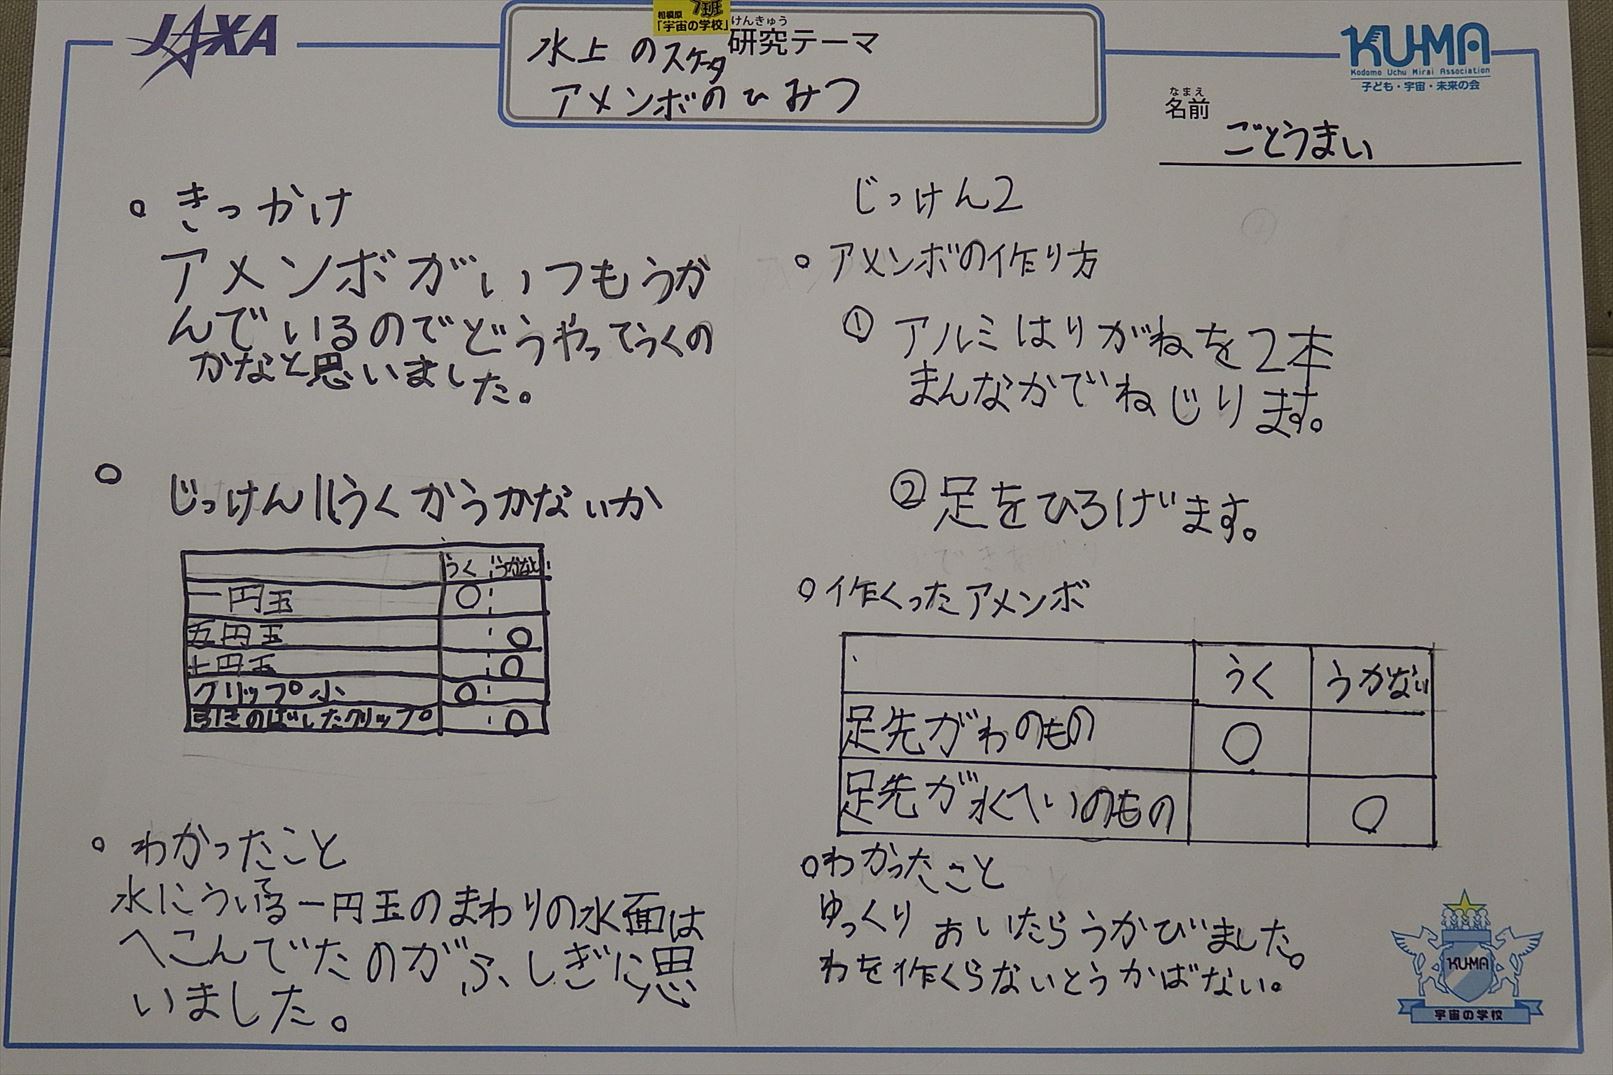 JAXA
相模原 7班
「宇宙の学校」
けんきゅう
研究テーマ
水上のスケータ
アメンボのひみつ
KU-MA
Kodomo Uchu Mirai Association
子ども・宇宙・未来の会
なまえ
名前
ごとうまい
。きっかけ
アメンボがいつもうか
んでいるのでどうやってうくの
かなと思いました。
。じっけん1 うくかうかないか
うく うかない
一円玉 ○
五円玉 ○
十円玉 ○
クリップ小 ○
引きのばしたクリップ ○
。わかったこと
水にういてる一円玉のまわりの水面は
へこんでたのがふしぎに思
いました。
じっけん2
。アメンボの作り方
① アルミはりがねを2本
まんなかでねじります。
② 足をひろげます。
。作くったアメンボ
うく うかない
足先がわのもの ○
足先が水へいのもの ○
。わかったこと
ゆっくりおいたらうかびました。
わを作くらないとうかばない。
KU-MA
宇宙の学校